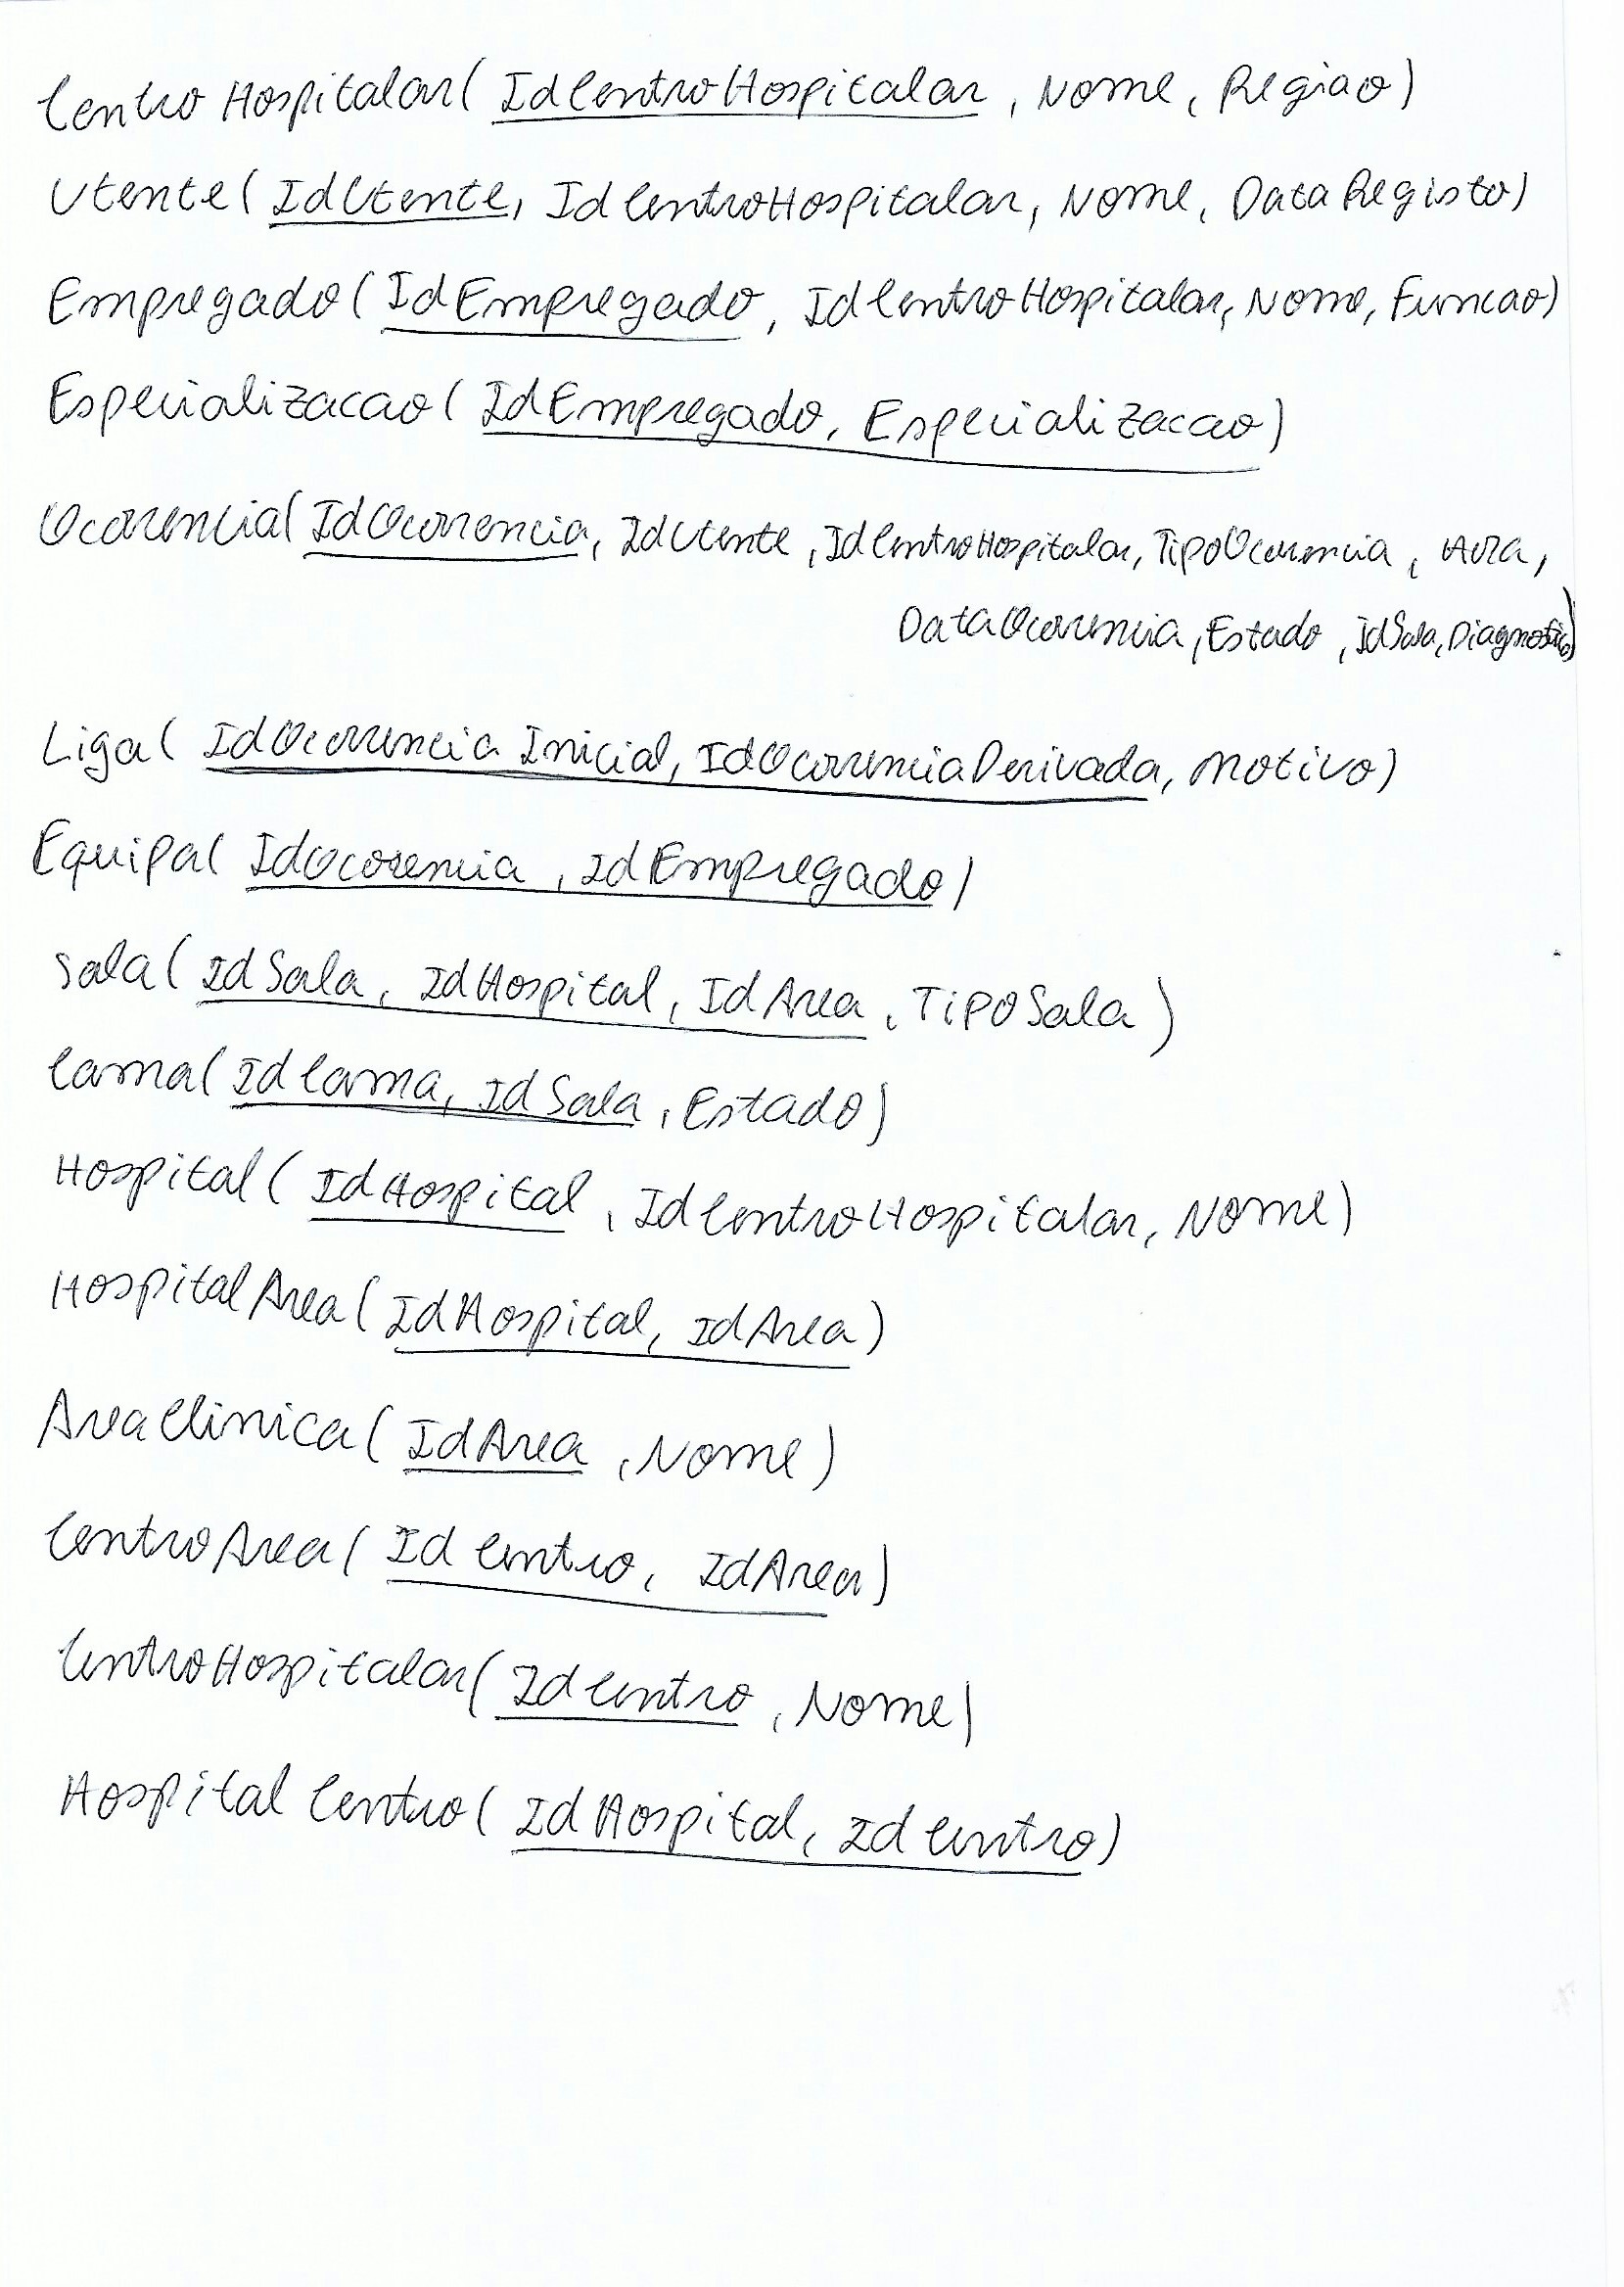 Centro Hospitalar( IdCentroHospitalar, Nome, Regiao)
Utente( IdUtente, IdCentroHospitalar, Nome, DataRegisto)
Empregado( IdEmpregado, IdCentroHospitalar, Nome, Funcao)
Especializacao( IdEmpregado, Especializacao)
Ocorrencia( IdOcorrencia, IdUtente, IdCentroHospitalar, TipoOcorrencia, Hora,
DataOcorrencia, Estado, IdSala, Diagnostico)
Liga( IdOcorrencia Inicial, IdOcorrenciaDerivada, Motivo)
Equipa( IdOcorencia, IdEmpregado)
Sala( IdSala, IdHospital, IdArea, TipoSala)
Cama( IdCama, IdSala, Estado)
Hospital( IdHospital, IdCentroHospitalar, Nome)
Hospital Area( IdHospital, IdArea)
AreaClinica( IdArea, Nome)
CentroArea( IdCentro, IdArea)
CentroHospitalar( IdCentro, Nome)
Hospital Centro( IdHospital, IdCentro)